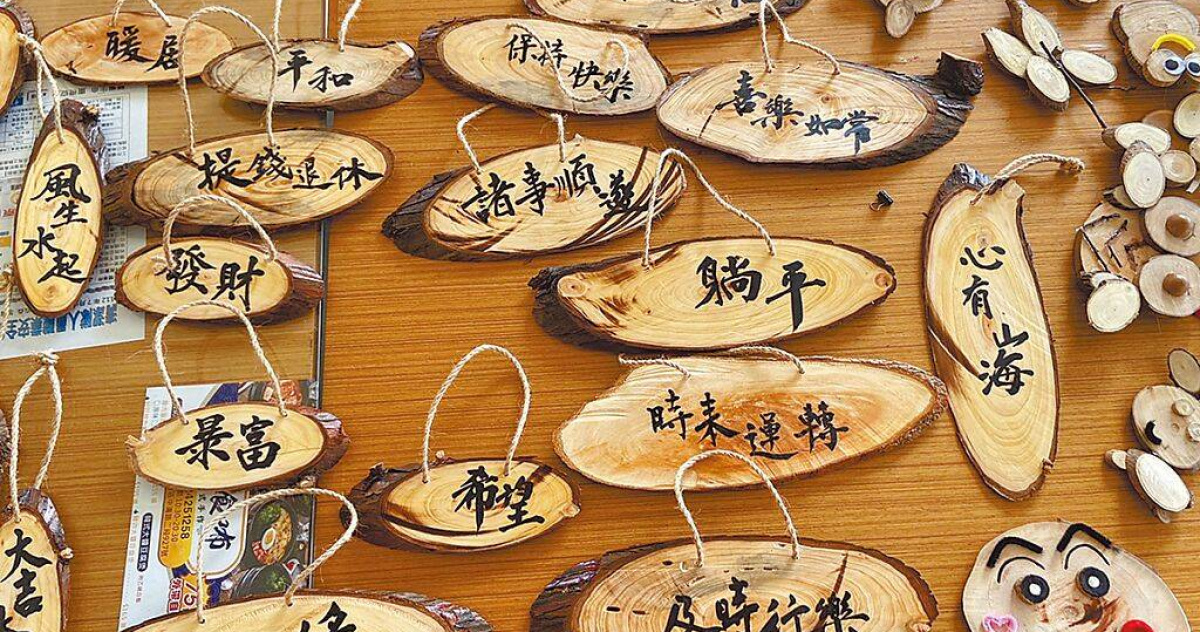 暖居
平和
保持快樂
喜樂如常
提錢退休
諸事順遂
風生
水起
發財
躺平
心有山海
時來運轉
暴富
希望
大吉
及時行樂
4251258